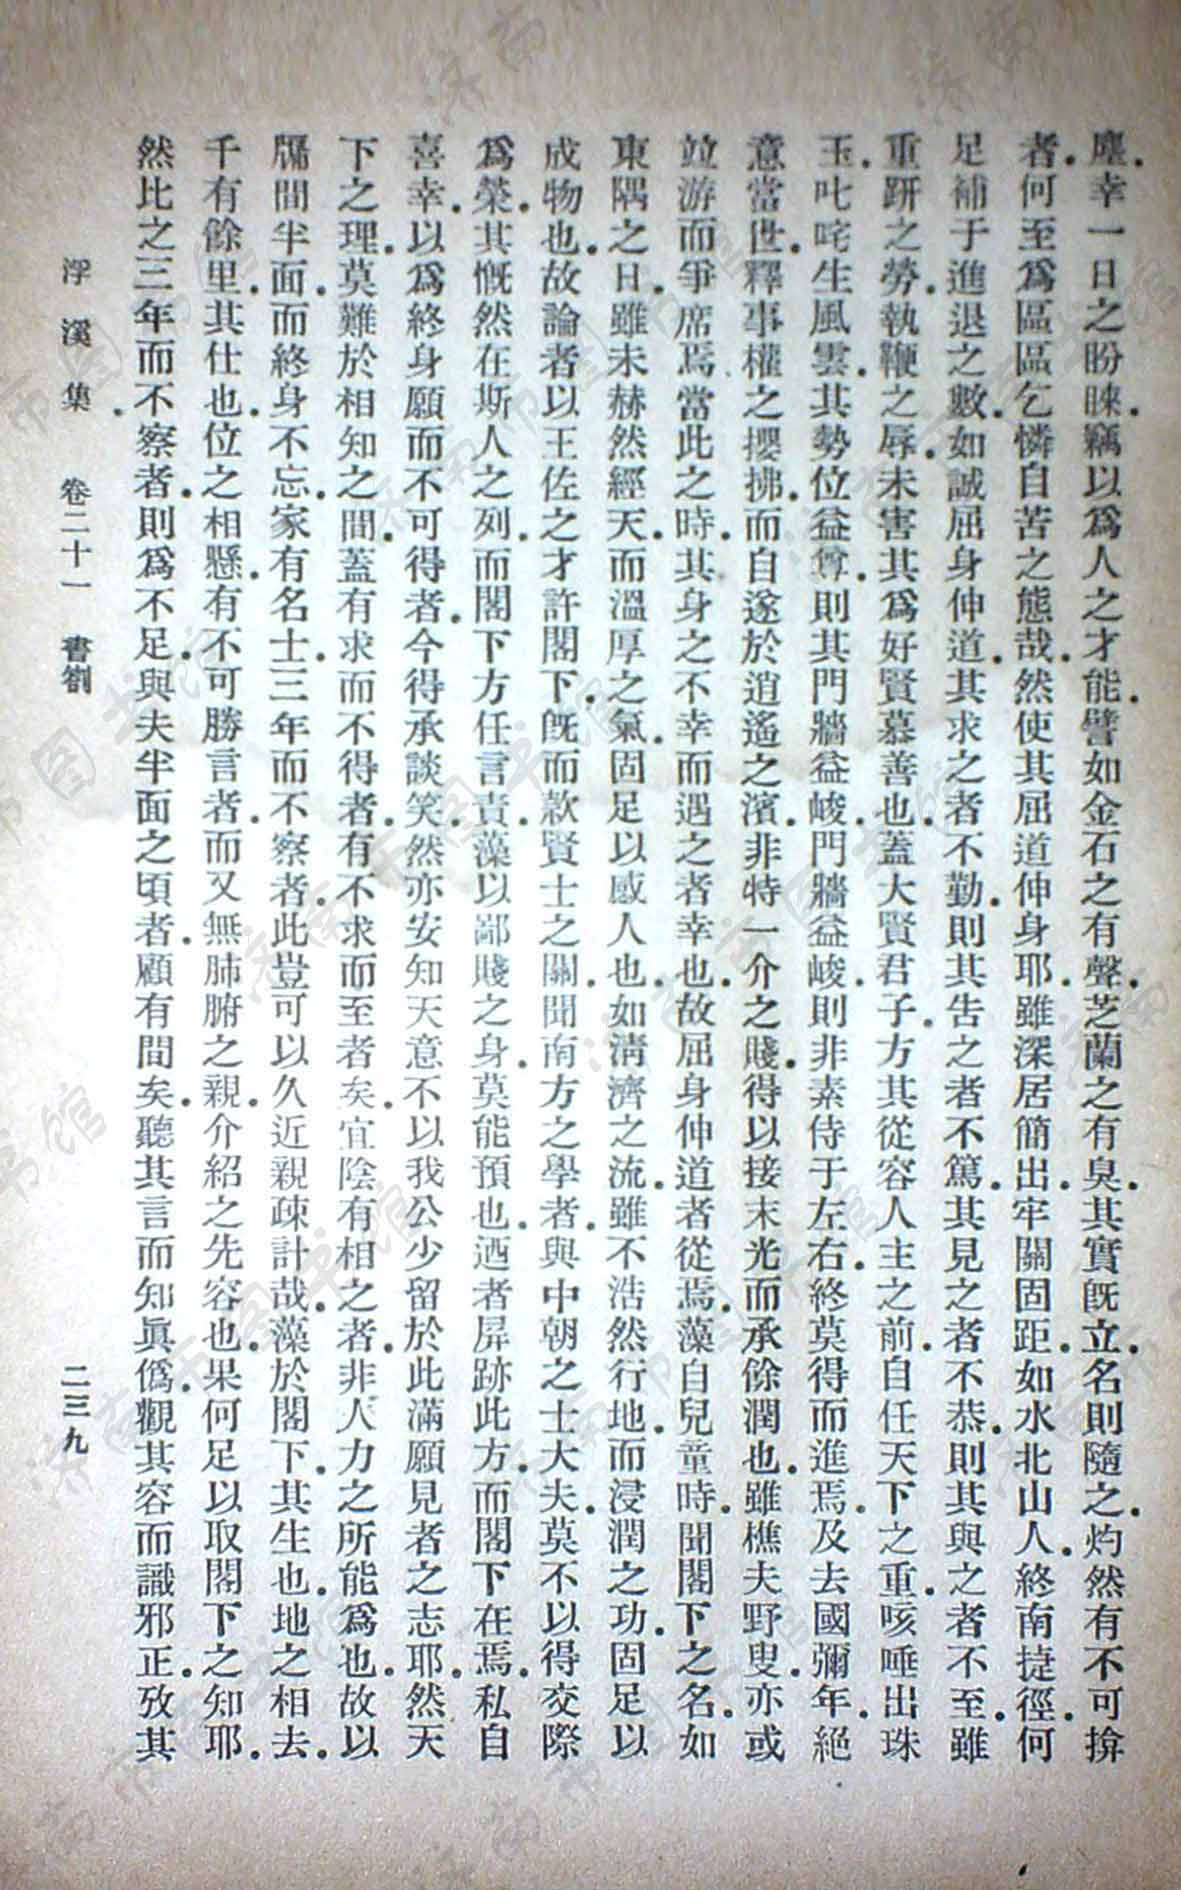 塵幸一日之盼睞竊以為人之才能譬如金石之有聲芝蘭之有臭其實既立名則隨之灼然有不可揜
者何至為區區乞憐自苦之態哉然使其屈道伸身耶雖深居簡出牢關固距如水北山人終南捷徑何
足補于進退之數如誠屈身伸道其求之者不勤則其告之者不篤其見之者不恭則其與之者不至雖
重趼之勞執鞭之辱未害其為好賢慕善也蓋大賢君子方其從容人主之前自任天下之重咳唾出珠
玉叱咤生風雲其勢位益尊則其門牆益峻門牆益峻則非素侍于左右終莫得而進焉及去國彌年絕
意當世釋事權之攖拂而自遂於逍遙之濱非特一介之賤得以接末光而承餘潤也雖樵夫野叟亦或
竝游而爭席焉當此之時其身之不幸而遇之者幸也故屈身伸道者從焉藻自兒童時聞閣下之名如
東隅之日雖未赫然經天而溫厚之氣固足以感人也如清濟之流雖不浩然行地而浸潤之功固足以
成物也故論者以王佐之才許閣下既而款賢士之關聞南方之學者與中朝之士大夫莫不以得交際
為榮其慨然在斯人之列而閣下方任言責藻以鄙賤之身莫能預也迺者屏跡此方而閣下在焉私自
喜幸以為終身願而不可得者今得承談笑然亦安知天意不以我公少留於此滿願見者之志耶然天
下之理莫難於相知之間蓋有求而不得者有不求而至者矣宜陰有相之者非人力之所能為也故以
牖間半面而終身不忘家有名士三年而不察者此豈可以久近親疎計哉藻於閣下其生也地之相去
千有餘里其仕也位之相懸有不可勝言者而又無肺腑之親介紹之先容也果何足以取閣下之知耶
然比之三年而不察者則為不足與夫半面之頃者顧有間矣聽其言而知眞偽觀其容而識邪正攷其
浮溪集 卷二十一 書劄 二三九
济南市图书馆